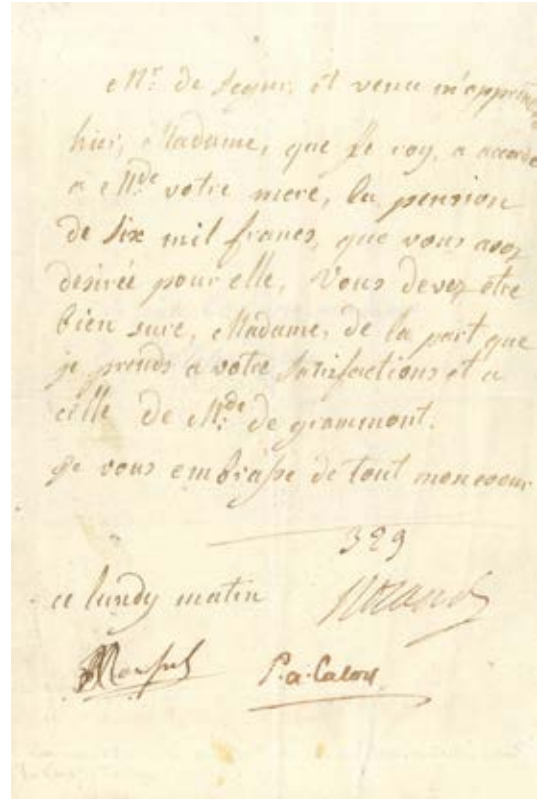 Mr. de Segur, et venu m'apprendre
hier, Madame, que le roy, a accordé
a Mde votre mere, la pension
de six mil francs, que vous avez
desirée pour elle, Vous devez être
bien sure, Madame, de la part que
je prends a votre satisfactions et a
celle de Mde de grammont.
je vous embrasse de tout mon coeur
329
ce lundy matin
P. a. Calon